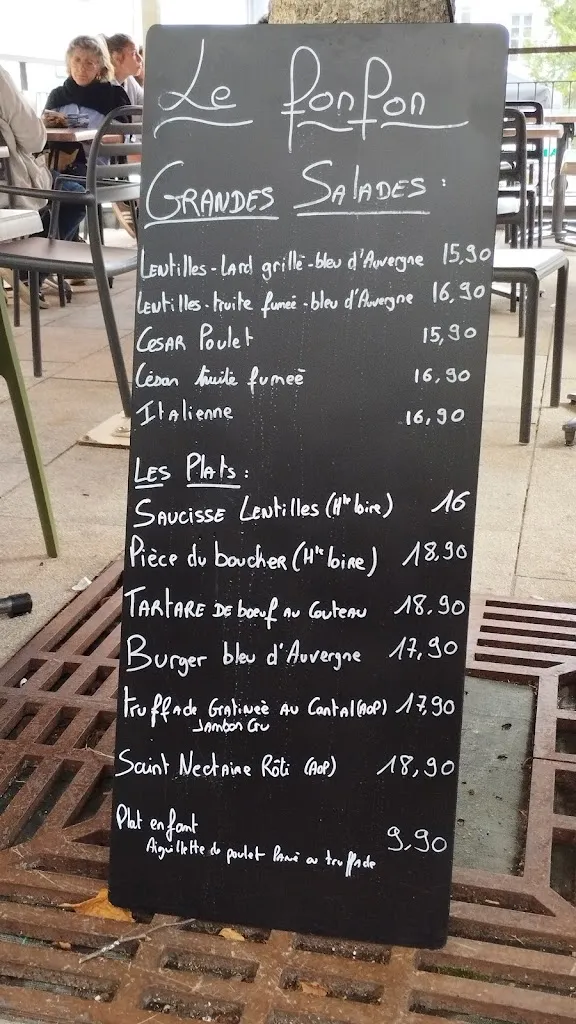 Le PonPon
GRANDES SALADES :
Lentilles - Lard grillé - bleu d'Auvergne 15,90
Lentilles - truite fumeé - bleu d'Auvergne 16,90
CESAR Poulet 15,90
César truite fumeé 16,90
Italienne 16,90
Les Plats :
SAUCISSE Lentilles (Hte Loire) 16
Pièce du boucher (Hte Loire) 18,90
TARTARE DE boeuf AU Couteau 18.90
Burger bleu d'Auvergne 17,90
truffade Gratineé AU Cantal (AOP) 17,90
Jambon Cru
Saint Nectaire Rôti (AOP) 18,90
Plat enfant 9,90
Aiguillette de poulet Pané ou truffade